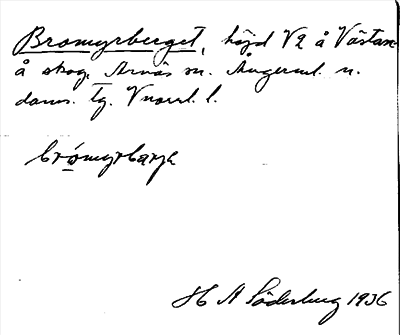 Bromyrberget, höjd V2 å Västan-
å skog, Arnäs sn. Ångerml. n.
doms. tg. Vnorrl. l.
brómyrbarjə
H A Söderberg 1936